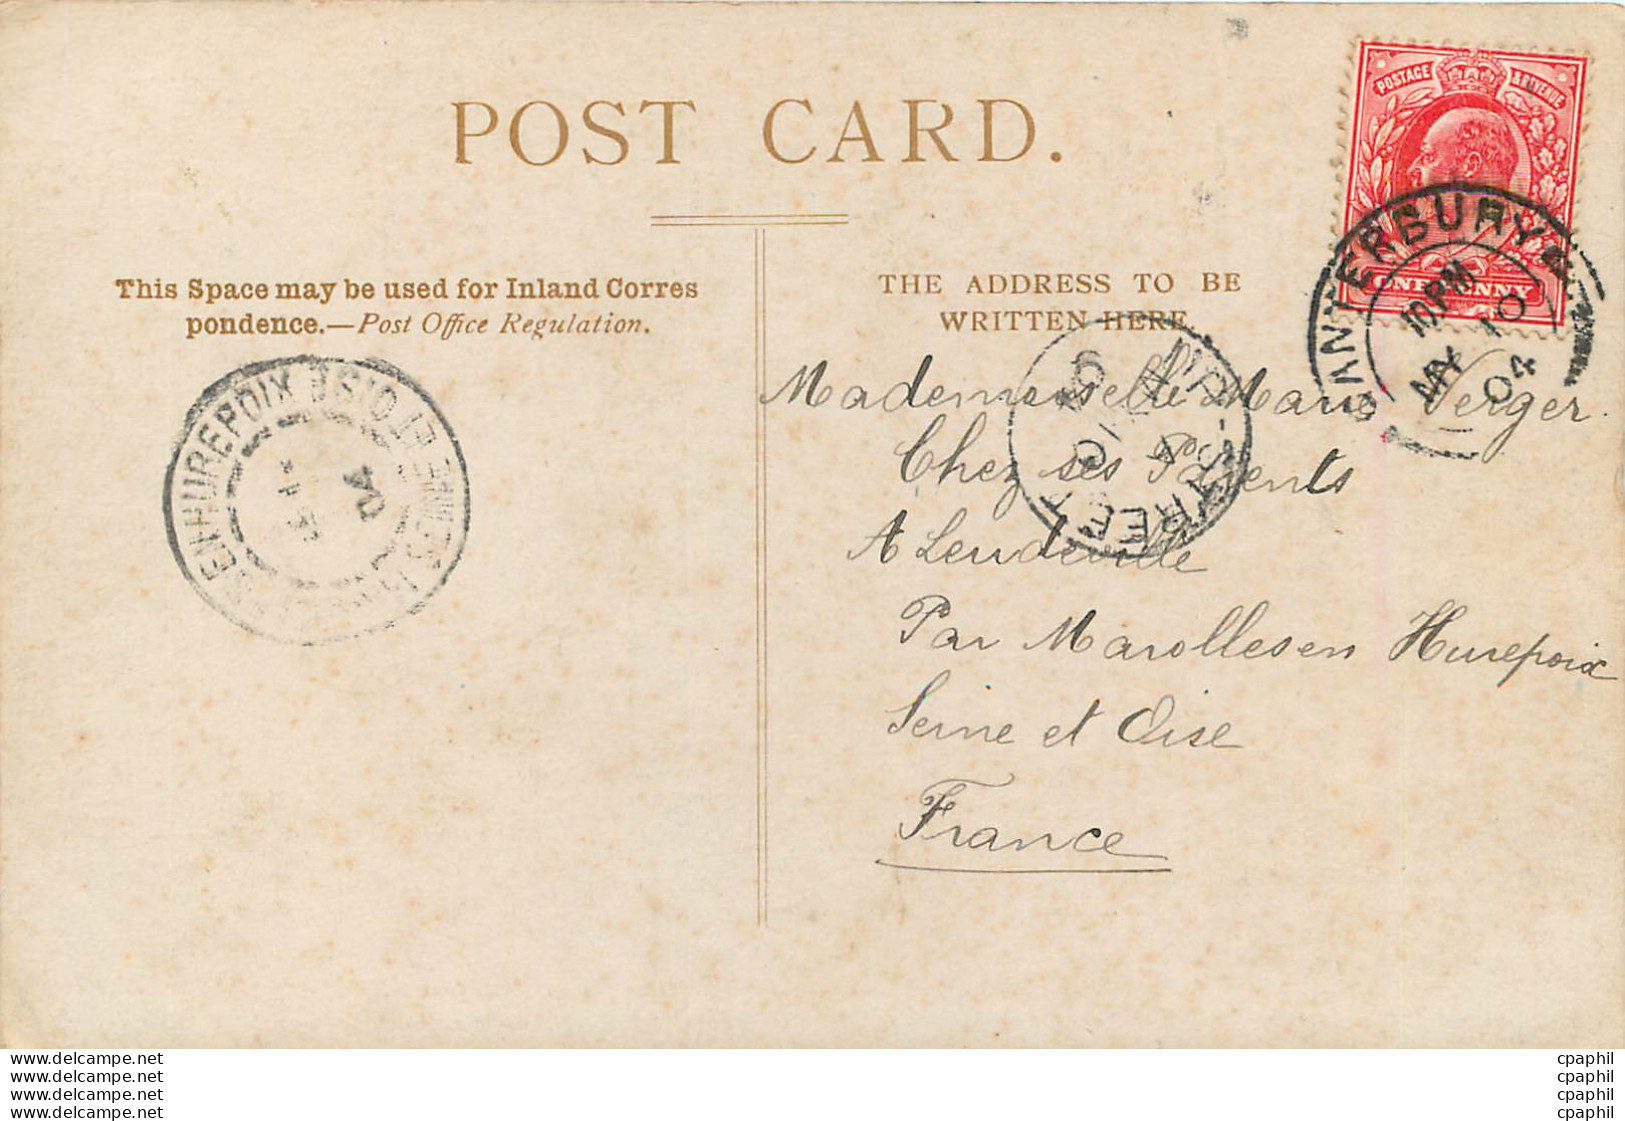 POST CARD.
POSTAGE & REVENUE
ONE PENNY
CANTERBURY
10 PM
MY 10
04
This Space may be used for Inland Corres
pondence.—Post Office Regulation.
THE ADDRESS TO BE
WRITTEN HERE.
EN HUREPOIX
SEINE ET OISE
04
Mademoiselle Marie Verger.
Chez ses Parents
A Leudeville
Par Marolles en Hurepoix
Seine et Oise
France
www.delcampe.net
www.delcampe.net
www.delcampe.net
www.delcampe.net
cpaphil
cpaphil
cpaphil
cpaphil